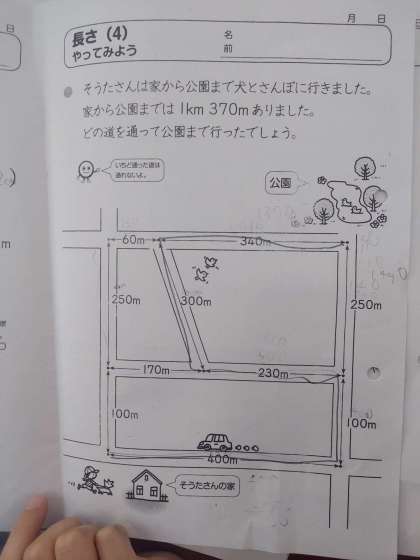 月 日
長さ（4）
やってみよう
名
前
そうたさんは家から公園まで犬とさんぽに行きました。
家から公園までは1km 370mありました。
どの道を通って公園まで行ったでしょう。
いちど通った道は
通れないよ。
公園
60m
340m
250m
300m
250m
170m
230m
100m
100m
400m
そうたさんの家
日
m